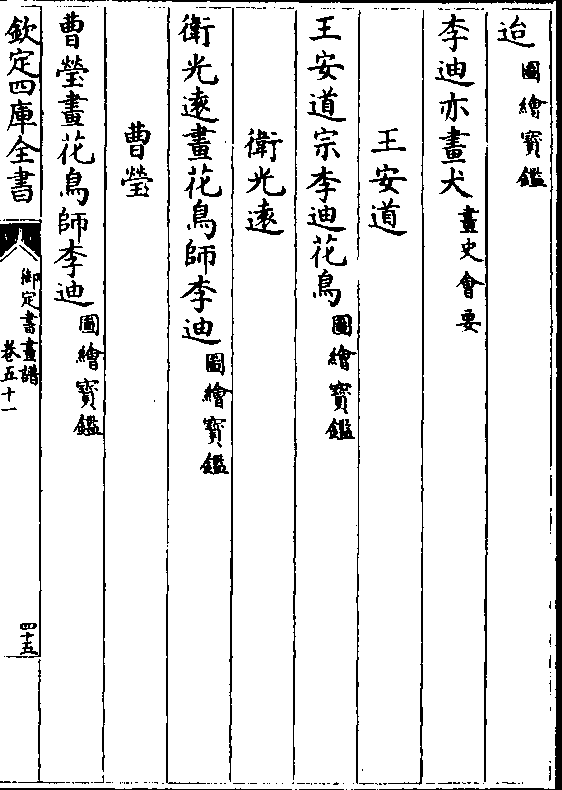 迨圖繪寶鑑
李迪亦畫犬畫史會要
王安道
王安道宗李迪花鳥圖繪寶鑑
衛光遠
衛光遠畫花鳥師李迪圖繪寶鑑
曹瑩
曹瑩畫花鳥師李迪圖繪寶鑑
欽定四庫全書
御定書畫譜
卷五十一
四十五